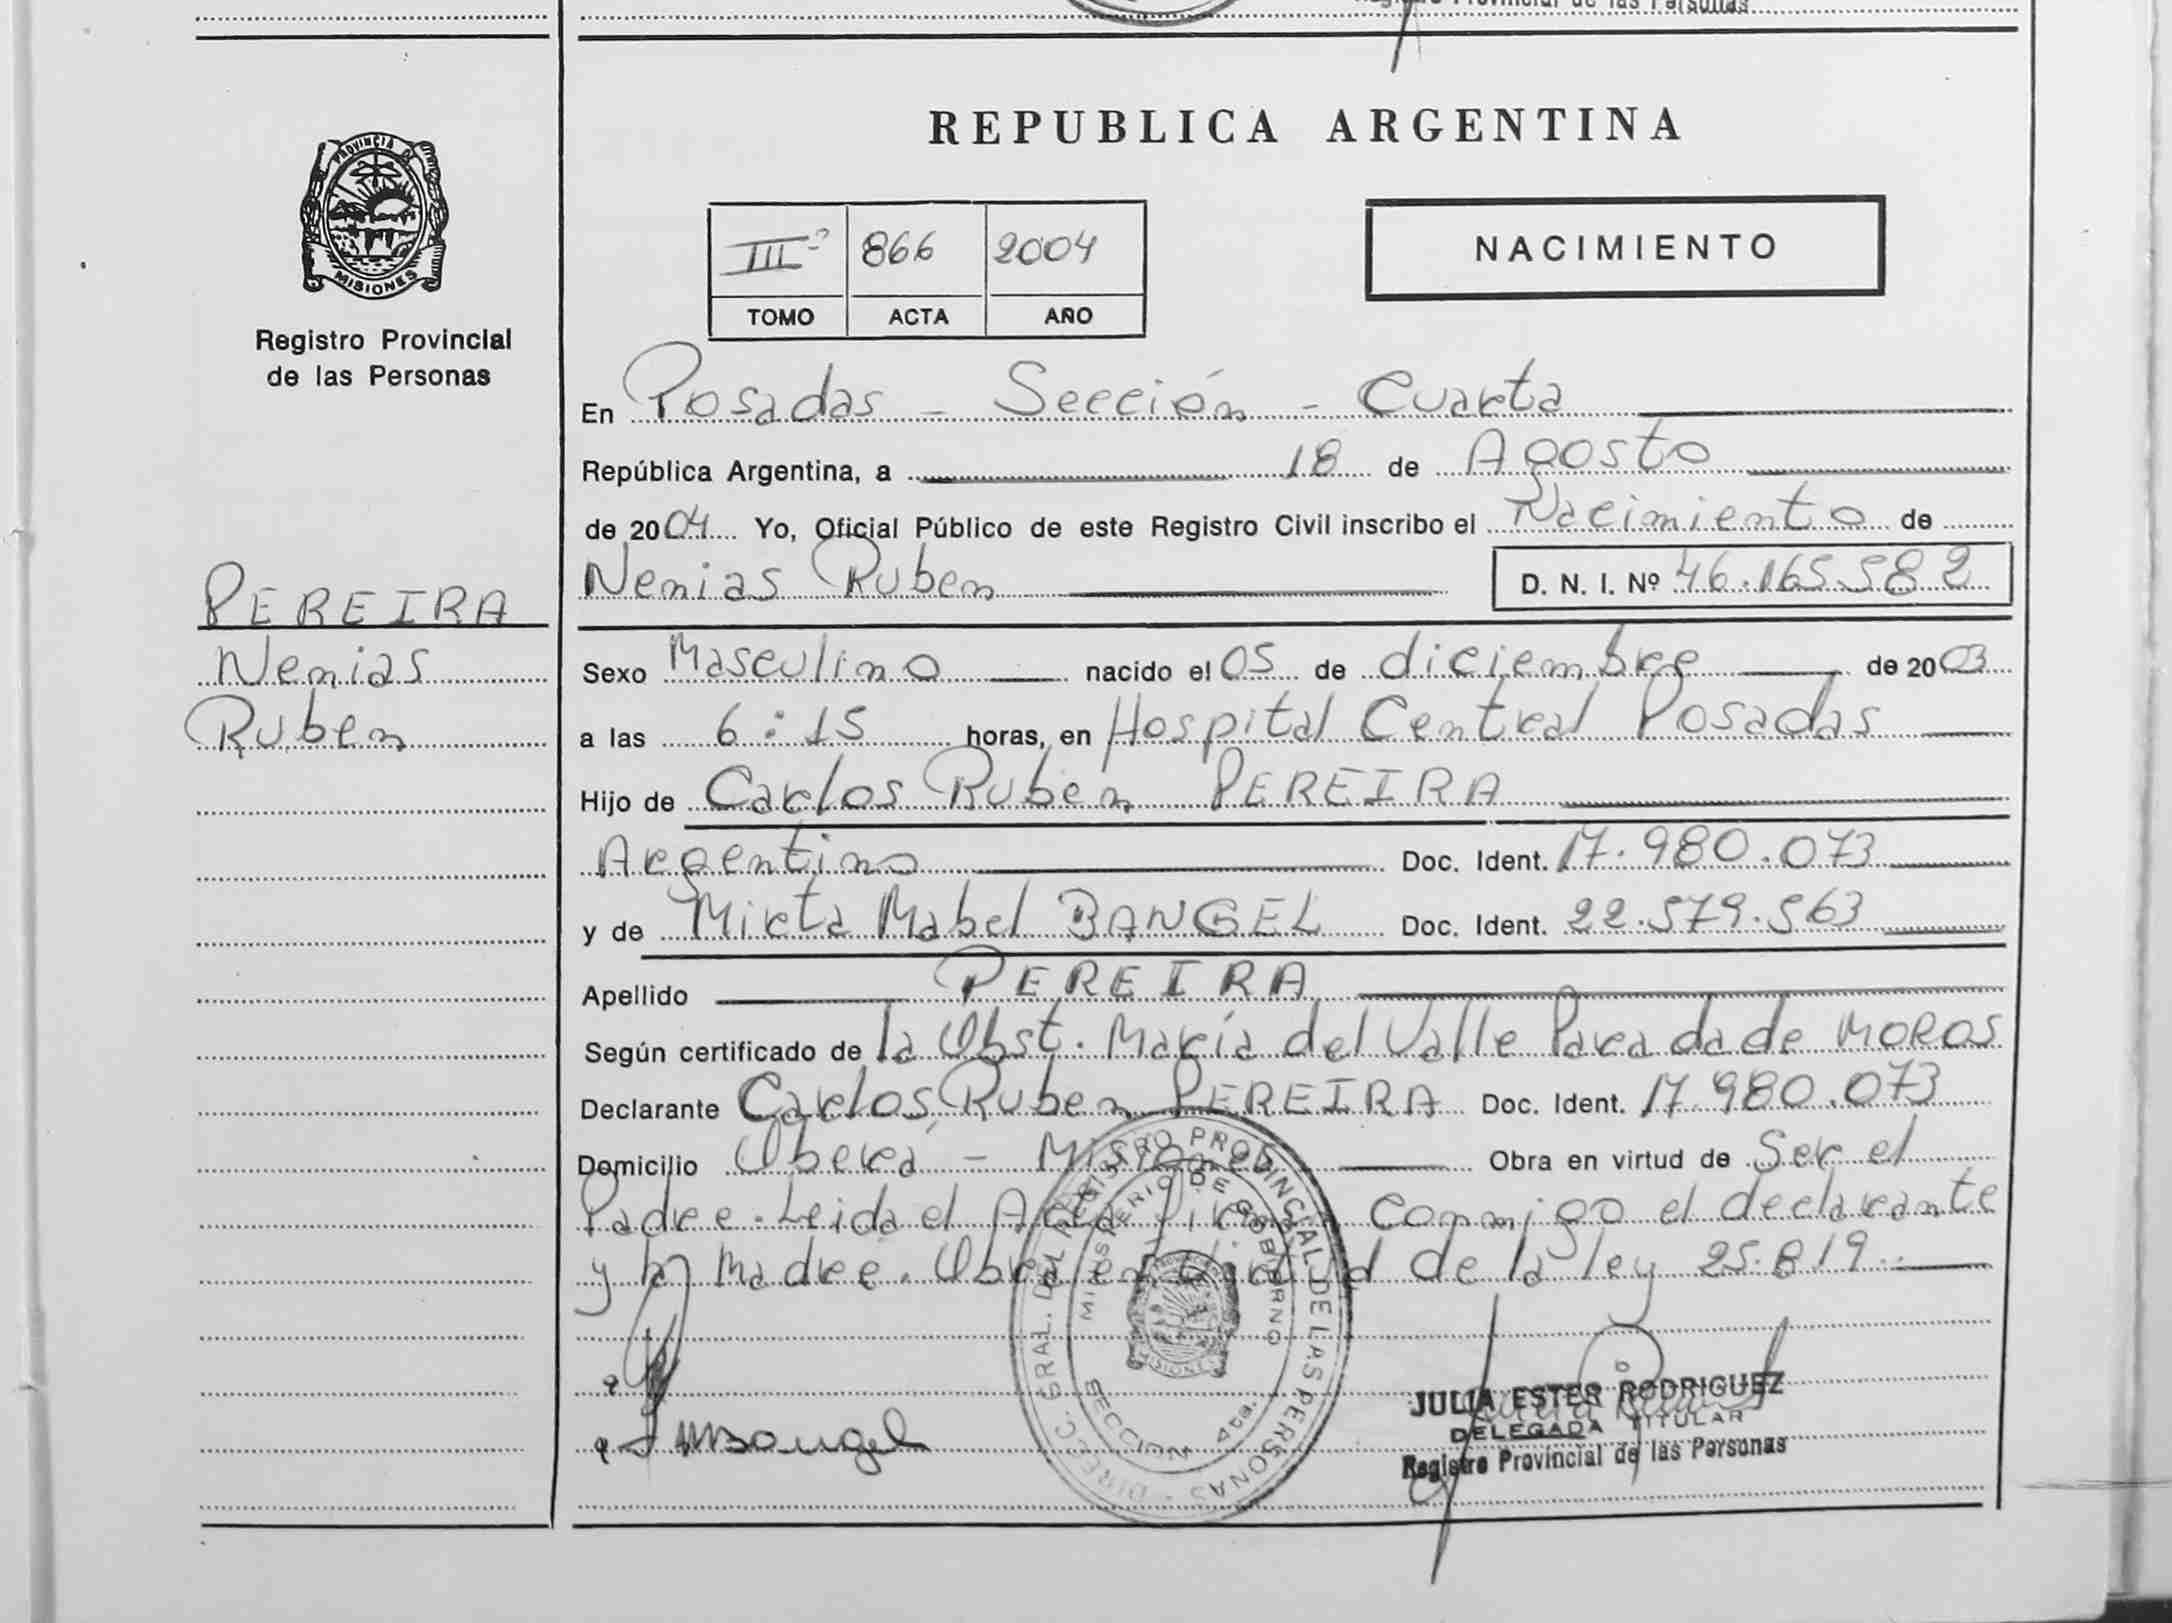 Registro Provincial de las Personas
REPUBLICA ARGENTINA
PROVINCIA DE
MISIONES
Registro Provincial
de las Personas
III 866 2004
TOMO ACTA AÑO
NACIMIENTO
En Posadas - Sección - Cuarta
República Argentina, a 18 de Agosto
de 2004 Yo, Oficial Público de este Registro Civil inscribo el Nacimiento de
Nemias Ruben D. N. I. Nº 46.165.582
PEREIRA
Nemias
Ruben
Sexo Masculino nacido el 05 de diciembre de 2003
a las 6:15 horas, en Hospital Central Posadas
Hijo de Carlos Ruben PEREIRA
Argentino Doc. Ident. 17.980.073
y de Mirta Mabel BANGEL Doc. Ident. 22.579.563
Apellido PEREIRA
Según certificado de la Obst. María del Valle Parada de MOROS
Declarante Carlos Ruben PEREIRA Doc. Ident. 17.980.073
Domicilio Oberá - Misiones Obra en virtud de Ser el
Padre. Leida el Acta Firman conmigo el declarante
y la Madre. Obra en virtud de la ley 25.819.-
DIRECC. GRAL. DEL REGISTRO PROVINCIAL DE LAS PERSONAS
MINISTERIO DE GOBIERNO
MISIONES
SECCION 4ta.
JULIA ESTER RODRIGUEZ
DELEGADA TITULAR
Registro Provincial de las Personas